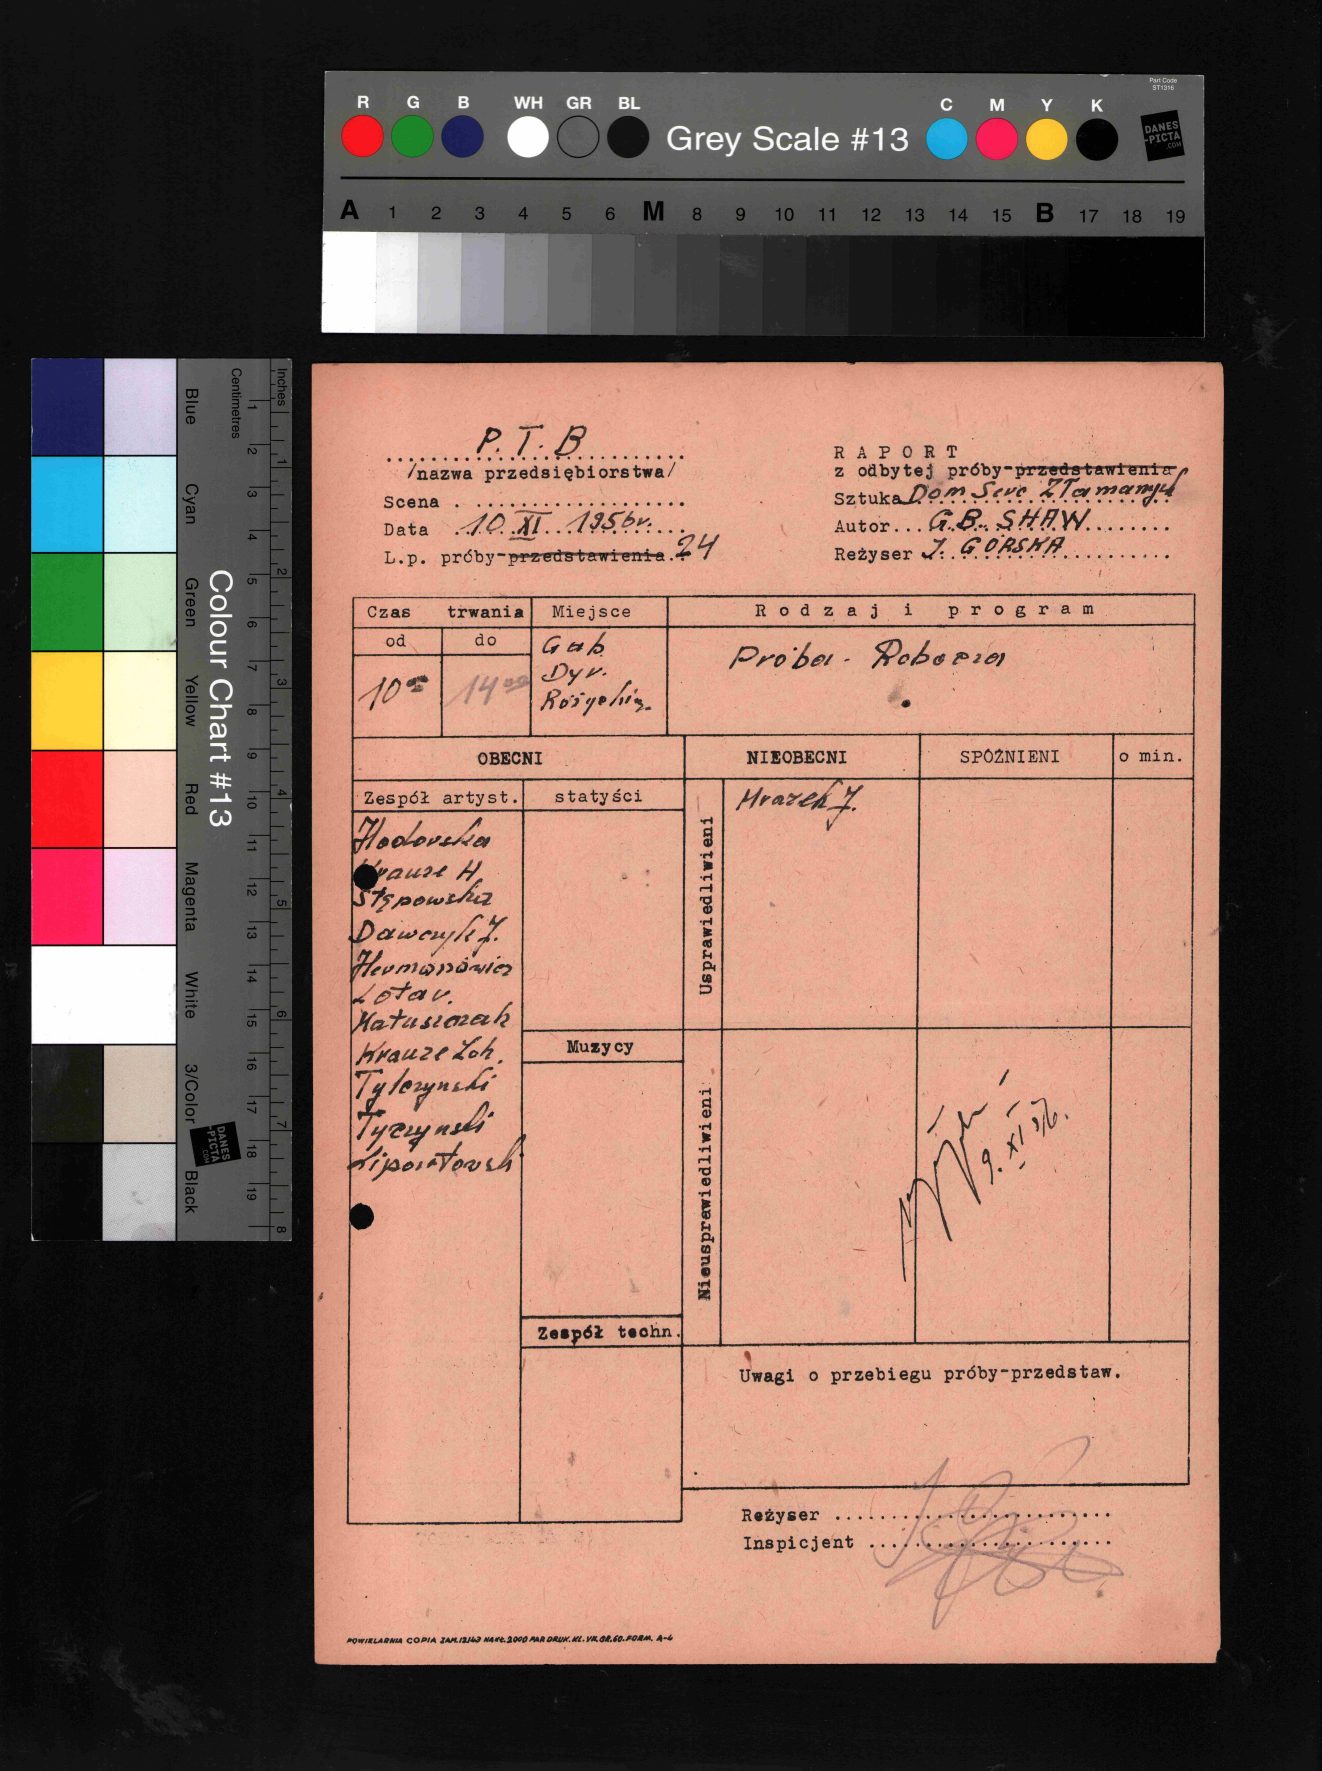 Part Code
ST1316
R G B WH GR BL Grey Scale #13 C M Y K
DANES
-PICTA
.COM
A 1 2 3 4 5 6 M 8 9 10 11 12 13 14 15 B 17 18 19
Colour Chart #13
Blue Cyan Green Yellow Red Magenta White 3/Color Black
Centimetres 1 2 3 4 5 6 7 8 9 10 11 12 13 14 15 16 17 18 19
Inches 1 2 3 4 5 6 7 8
DANES
-PICTA
.COM
P. T. B
/nazwa przedsiębiorstwa/
Scena
Data 10 XI 1956r.
L.p. próby-przedstawienia 24
R A P O R T
z odbytej próby-przedstawienia
Sztuka Dom Serc Złamanych
Autor G.B. SHAW
Reżyser J. GÓRSKA
Czas trwania Miejsce Rodzaj i program
od do
10 00 14 00
Gab
Dyr.
Próba - Robocza
OBECNI NIEOBECNI SPÓŹNIENI o min.
Zespół artyst. statyści
Usprawiedliwieni
Mrazek J.
Hodorska
Krauze H
Stępowska
Dawczyk J.
Hermanowicz
Lotar.
Matusiczak
Krauze Zoh.
Tylczynski
Tyczynski
Muzycy
Nieusprawiedliwieni
9. XI 56.
Zespół techn.
Uwagi o przebiegu próby-przedstaw.
Reżyser
Inspicjent
POWIELARNIA COPIA ZAM. 12143 NAKŁ. 2000 PAP. DRUK. KL. VII. GR. 60. FORM. A-4